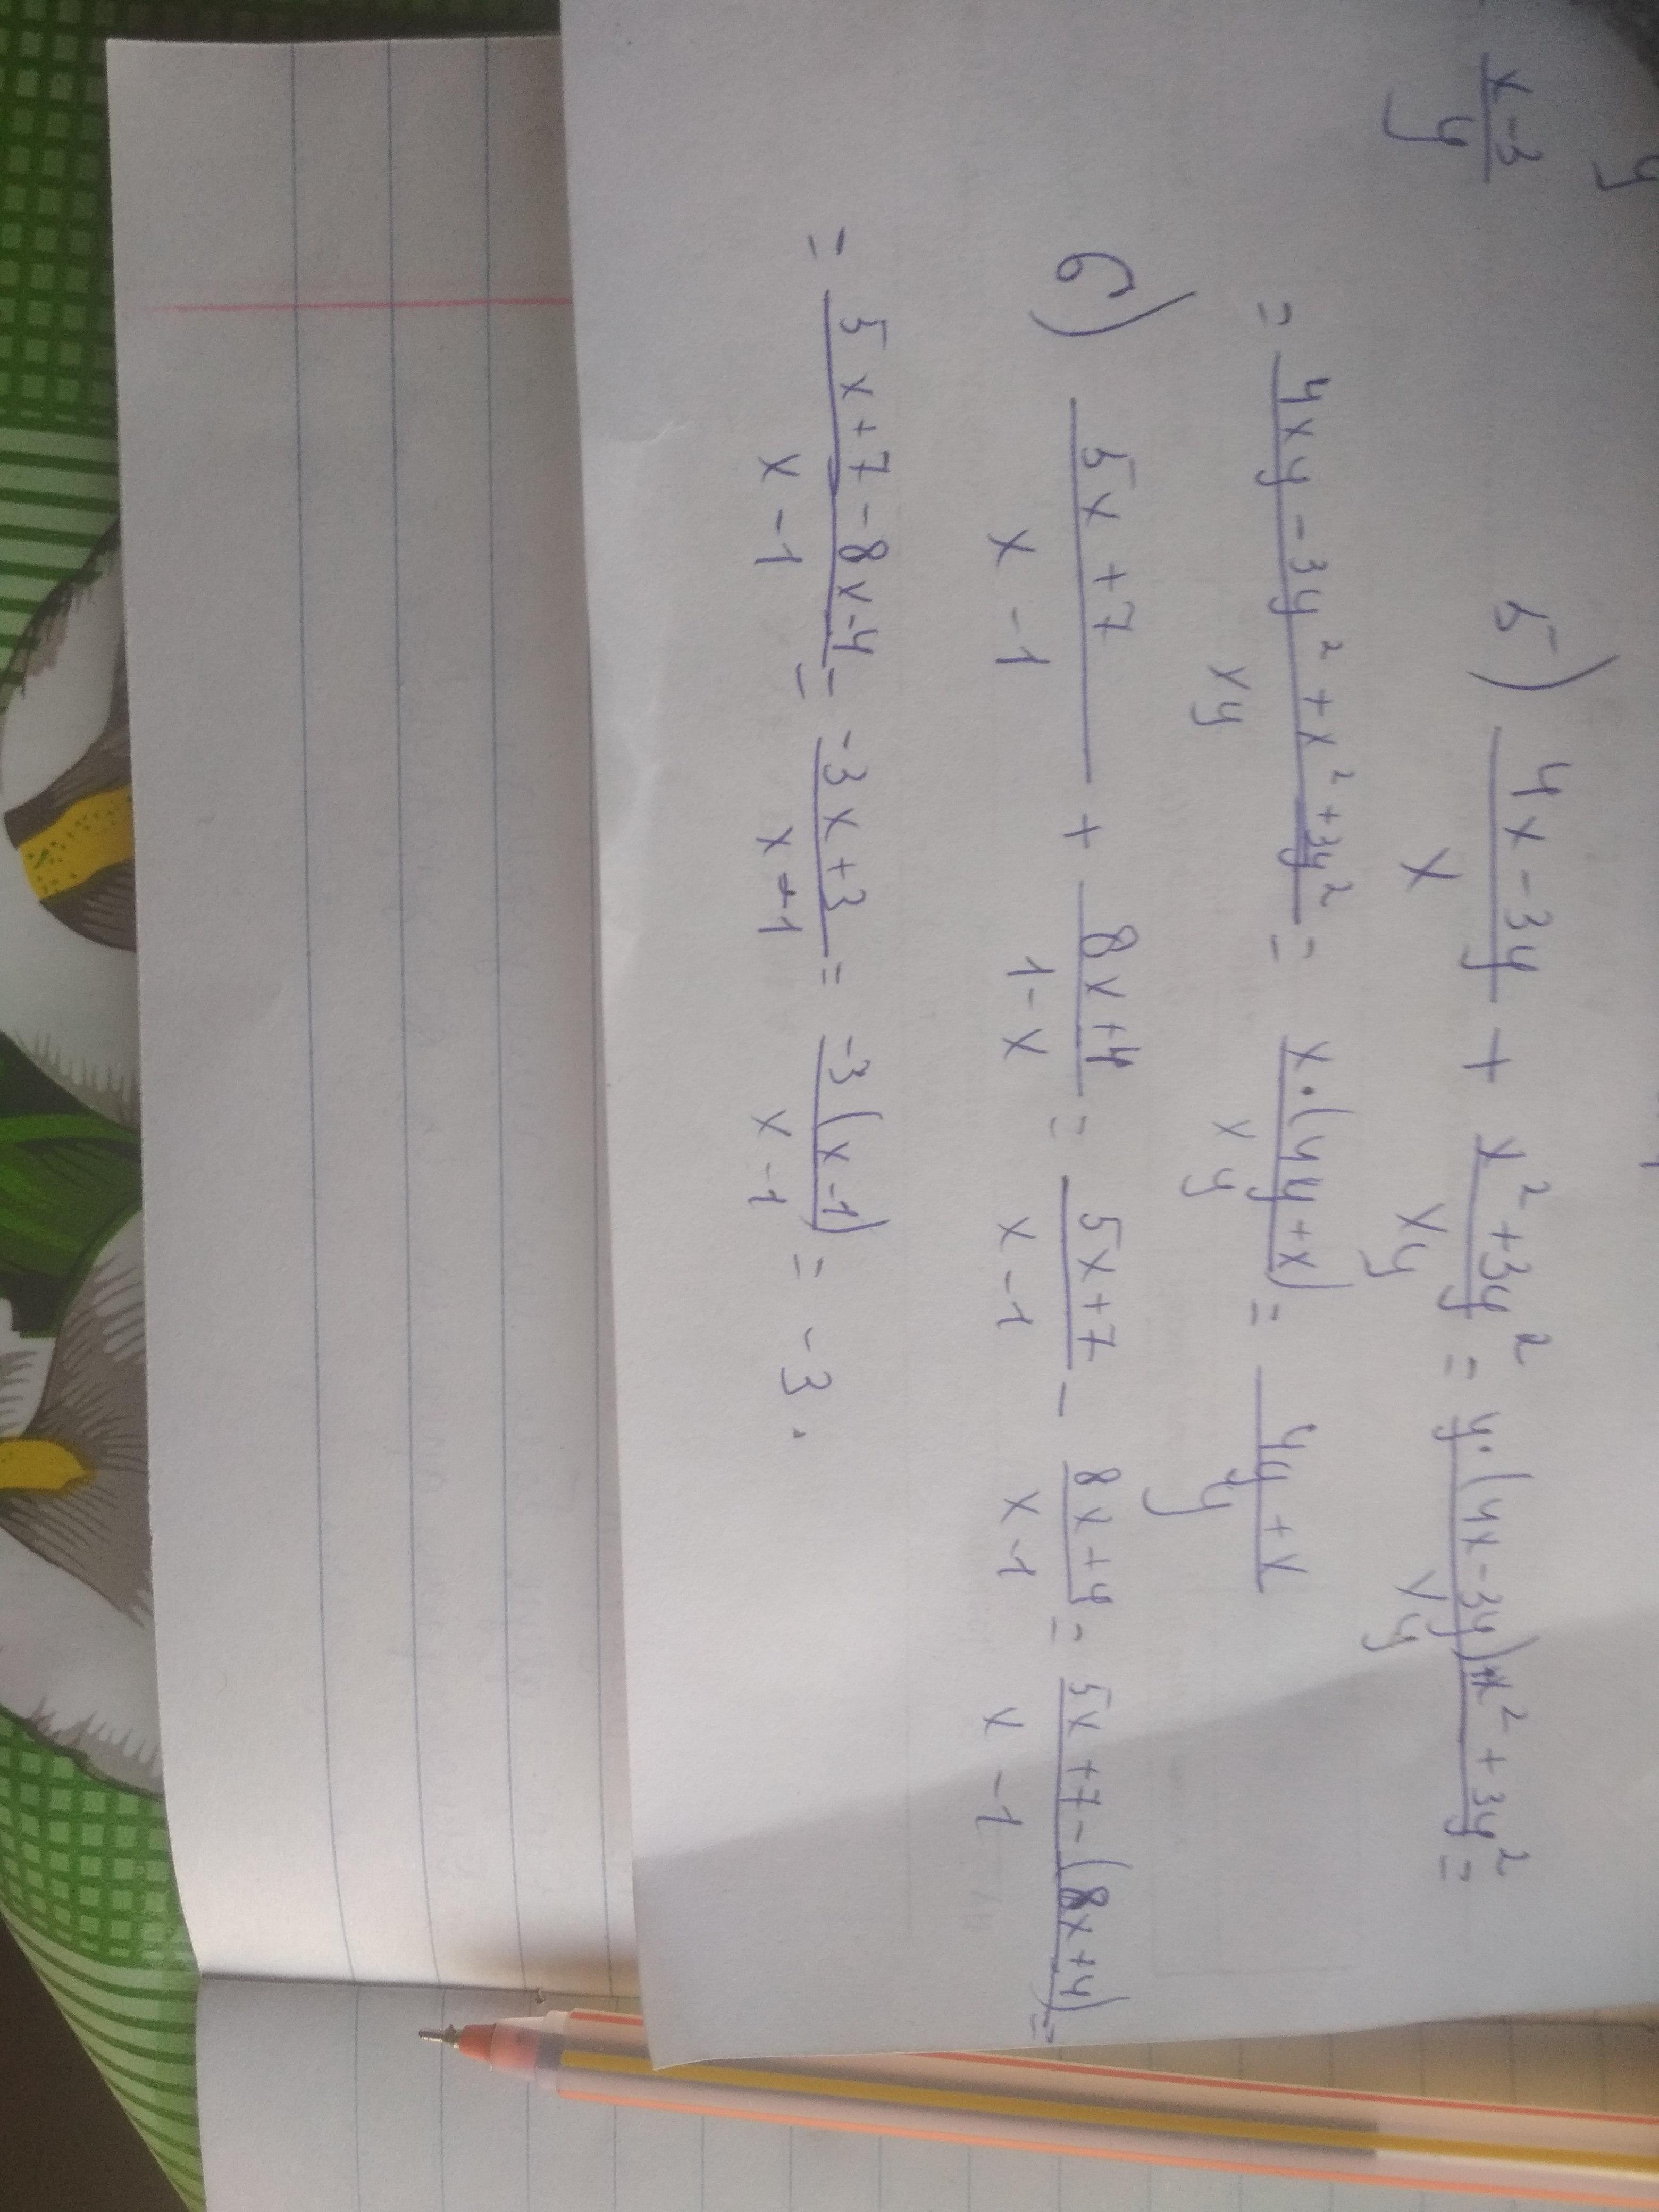 y
x-3/y
5) (4x-3y)/x + (x²+3y²)/xy = (y·(4x-3y)+x²+3y²)/xy =
= (4xy-3y²+x²+3y²)/xy = (x·(4y+x))/xy = (4y+x)/y
6) (5x+7)/(x-1) + (8x+4)/(1-x) = (5x+7)/(x-1) - (8x+4)/(x-1) = (5x+7-(8x+4))/(x-1) =
= (5x+7-8x-4)/(x-1) = (-3x+3)/(x-1) = (-3(x-1))/(x-1) = -3.